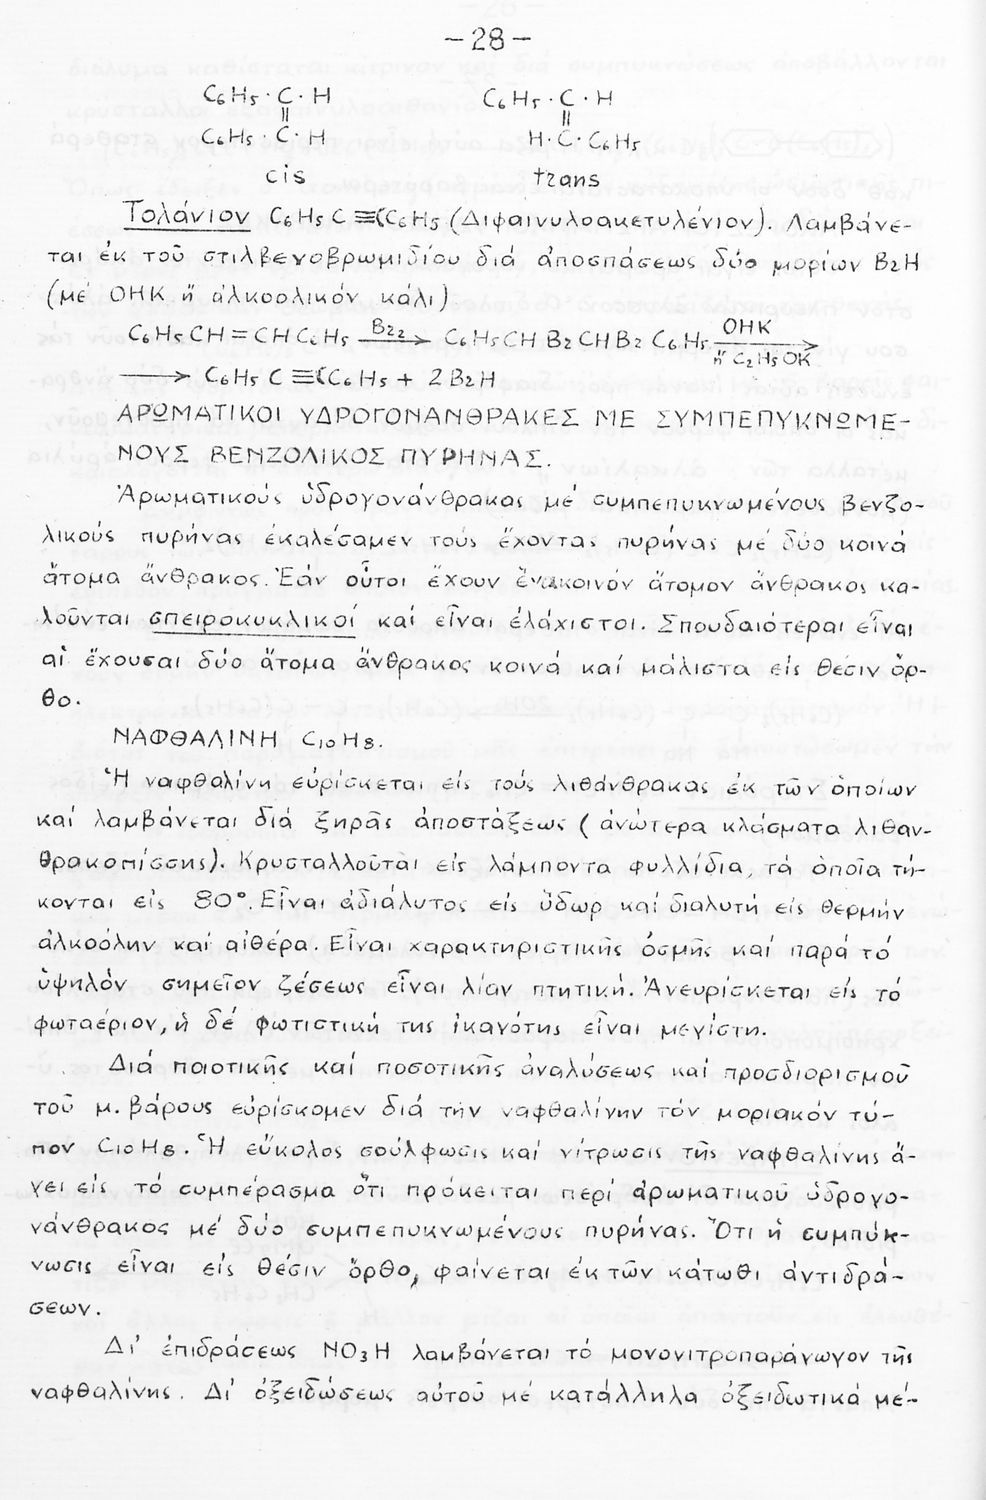 -28-
C6H5·C·H C6H5·C·H
|| ||
C6H5·C·H H·C·C6H5
cis trans
Τολάνιον C6H5C≡CC6H5 (Διφαινυλοακετυλένιον). Λαμβάνε-
ται ἐκ τοῦ στιλβενοβρωμιδίου διά ἀποσπάσεως δύο μορίων BrH
(μέ OHK ἤ ἀλκοολικόν κάλι)
C6H5CH=CHC6H5 —Br2→ C6H5CHBrCHBrC6H5 —OHK ἤ C2H5OK→
→ C6H5C≡CC6H5 + 2BrH
ΑΡΩΜΑΤΙΚΟΙ ΥΔΡΟΓΟΝΑΝΘΡΑΚΕΣ ΜΕ ΣΥΜΠΕΠΥΚΝΩΜΕ-
ΝΟΥΣ ΒΕΝΖΟΛΙΚΟΣ ΠΥΡΗΝΑΣ.
Ἀρωματικούς ὑδρογονάνθρακας μέ συμπεπυκνωμένους βενζο-
λικούς πυρήνας ἐκαλέσαμεν τούς ἔχοντας πυρήνας μέ δύο κοινά
ἄτομα ἄνθρακος. Ἐάν οὗτοι ἔχουν ἕνα κοινόν ἄτομον ἄνθρακος κα-
λοῦνται σπειροκυκλικοί καί εἶναι ἐλάχιστοι. Σπουδαιότεραι εἶναι
αἱ ἔχουσαι δύο ἄτομα ἄνθρακος κοινά καί μάλιστα εἰς θέσιν ὀρ-
θο.
ΝΑΦΘΑΛΙΝΗ C10H8.
Ἡ ναφθαλίνη εὑρίσκεται εἰς τούς λιθάνθρακας ἐκ τῶν ὁποίων
καί λαμβάνεται διά ξηρᾶς ἀποστάξεως (ἀνώτερα κλάσματα λιθαν-
θρακοπίσσης). Κρυσταλλοῦται εἰς λάμποντα φυλλίδια, τά ὁποῖα τή-
κονται εἰς 80°. Εἶναι ἀδιάλυτος εἰς ὕδωρ καί διαλυτή εἰς θερμήν
ἀλκοόλην καί αἰθέρα. Εἶναι χαρακτηριστικῆς ὀσμῆς καί παρά τό
ὑψηλόν σημεῖον ζέσεως εἶναι λίαν πτητική. Ἀνευρίσκεται εἰς τό
φωταέριον, ἡ δέ φωτιστική της ἱκανότης εἶναι μεγίστη.
Διά ποιοτικῆς καί ποσοτικῆς ἀναλύσεως καί προσδιορισμοῦ
τοῦ μ. βάρους εὑρίσκομεν διά τήν ναφθαλίνην τόν μοριακόν τύ-
πον C10H8. Ἡ εὔκολος σούλφωσις καί νίτρωσις τῆς ναφθαλίνης ἄ-
γει εἰς τό συμπέρασμα ὅτι πρόκειται περί ἀρωματικοῦ ὑδρογο-
νάνθρακος μέ δύο συμπεπυκνωμένους πυρήνας. Ὅτι ἡ συμπύκ-
νωσις εἶναι εἰς θέσιν ὀρθο, φαίνεται ἐκ τῶν κάτωθι ἀντιδρά-
σεων.
Δι' ἐπιδράσεως NO3H λαμβάνεται τό μονονιτροπαράγωγον τῆς
ναφθαλίνης. Δι' ὀξειδώσεως αὐτοῦ μέ κατάλληλα ὀξειδωτικά μέ-